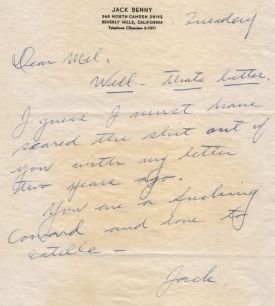 JACK BENNY
360 NORTH CAMDEN DRIVE
BEVERLY HILLS, CALIFORNIA
Telephone CRestview 6-7071
Tuesday
Dear Mel.
Well – thats better.
I guess I must have
scared the shit out of
you with my letter
two years ago.
You are a fucking
Coward and love to
Estelle –
Jack.